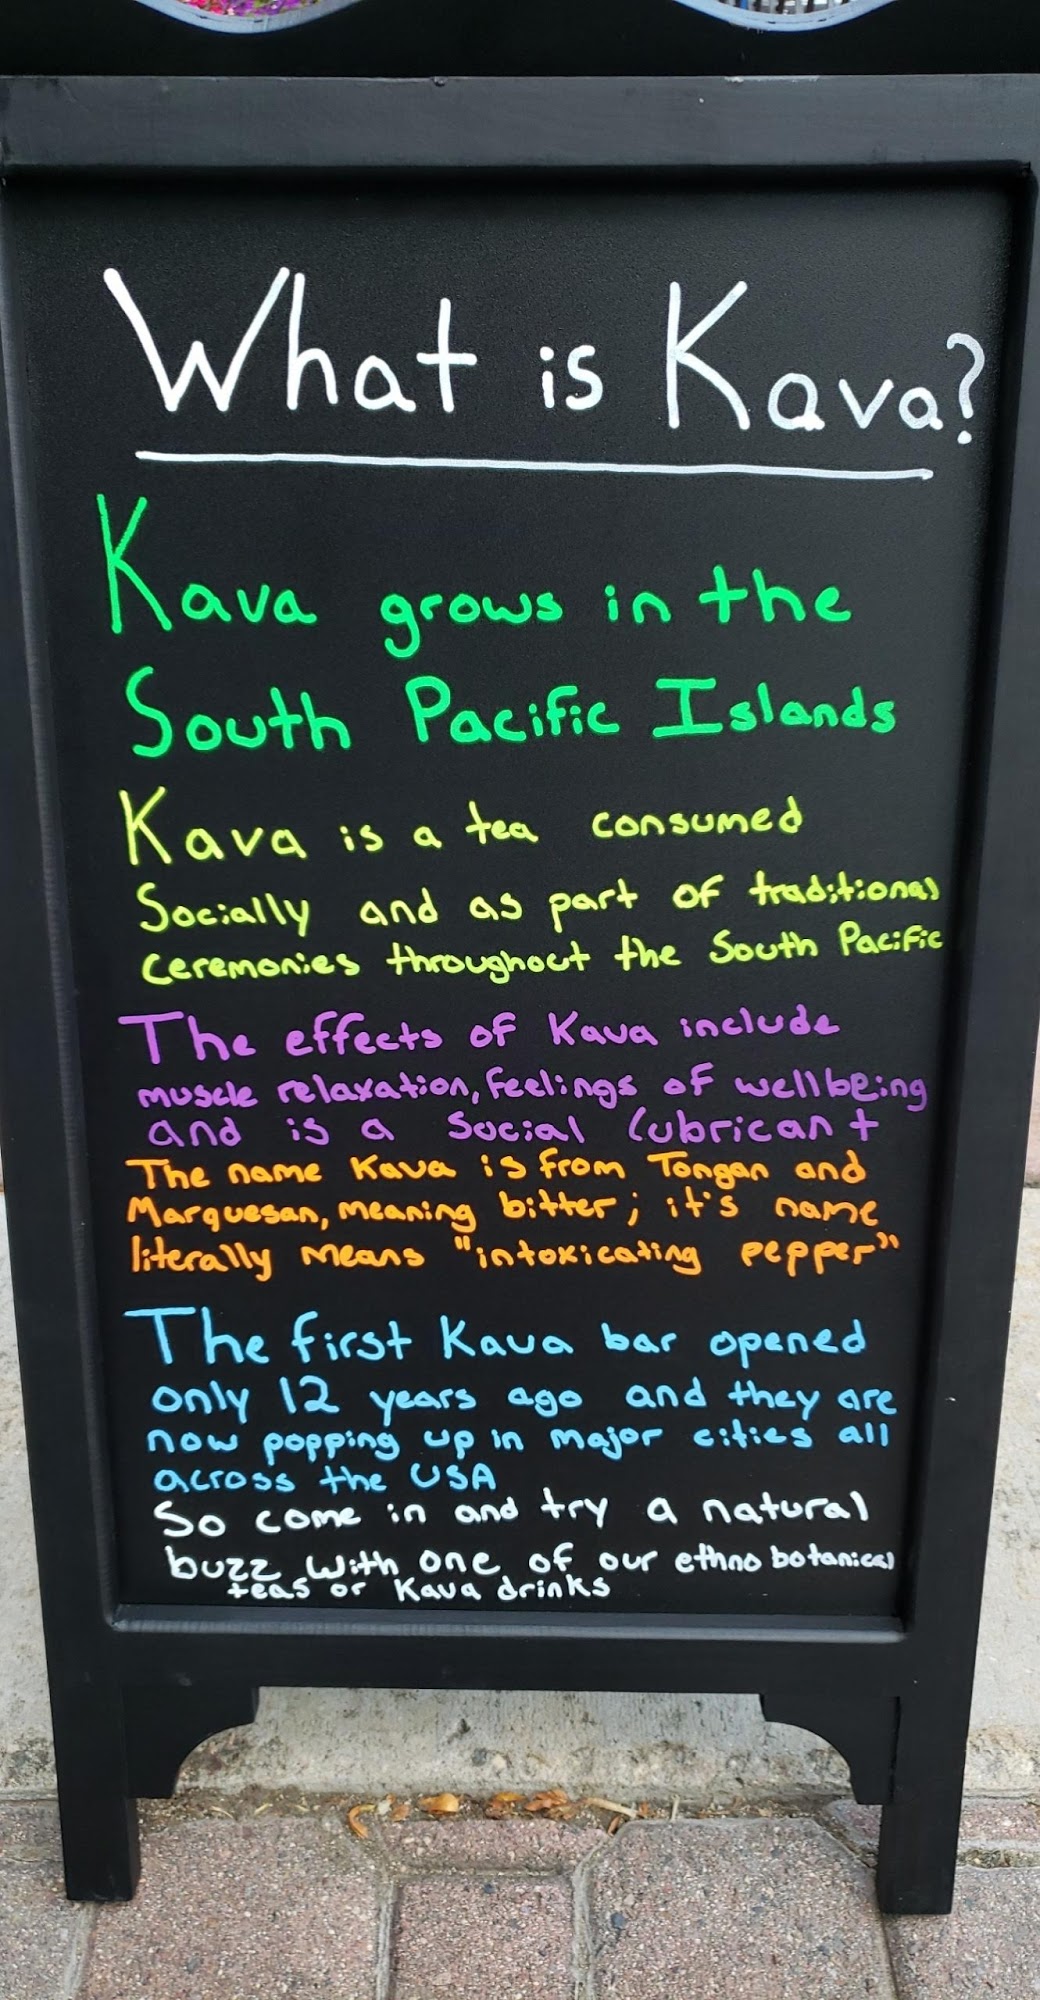 What is Kava?
Kava grows in the
South Pacific Islands
Kava is a tea consumed
Socially and as part of traditional
ceremonies throughout the South Pacific
The effects of Kava include
muscle relaxation, feelings of wellbeing
and is a Social lubricant
The name Kava is from Tongan and
Marquesan, meaning bitter; it's name
literally means "intoxicating pepper"
The first Kava bar opened
only 12 years ago and they are
now popping up in major cities all
across the USA
So come in and try a natural
buzz with one of our ethnobotanical
teas or Kava drinks